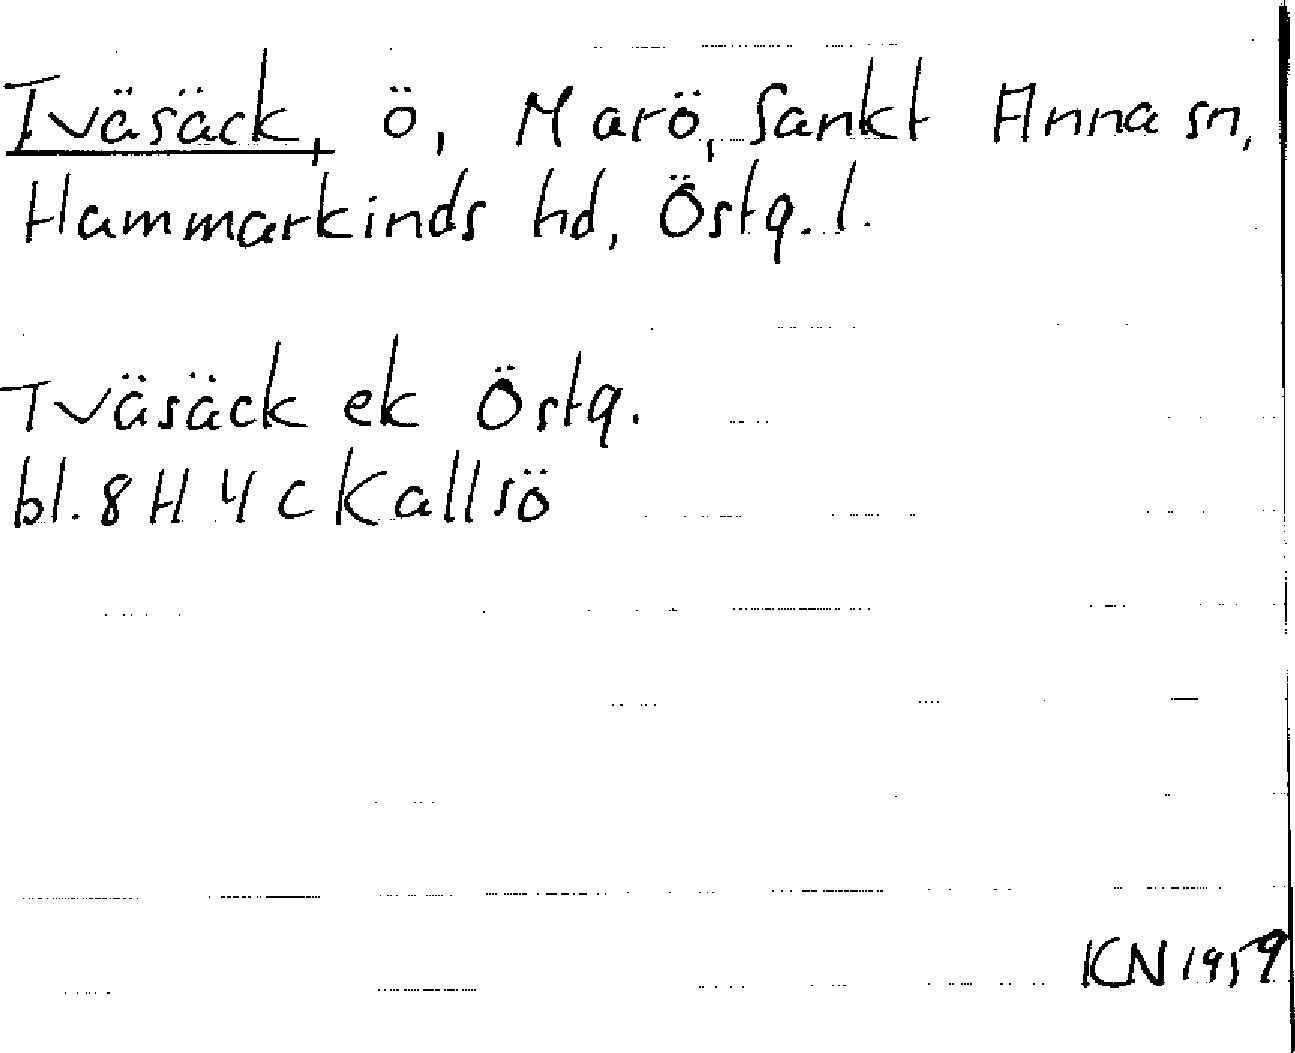 Tväsäck, ö, Marö, Sankt Anna sn,
Hammarkinds hd, Östg. l.
Tväsäck ek Östg.
bl. 8 H 4 c Kallsö
KN 1959